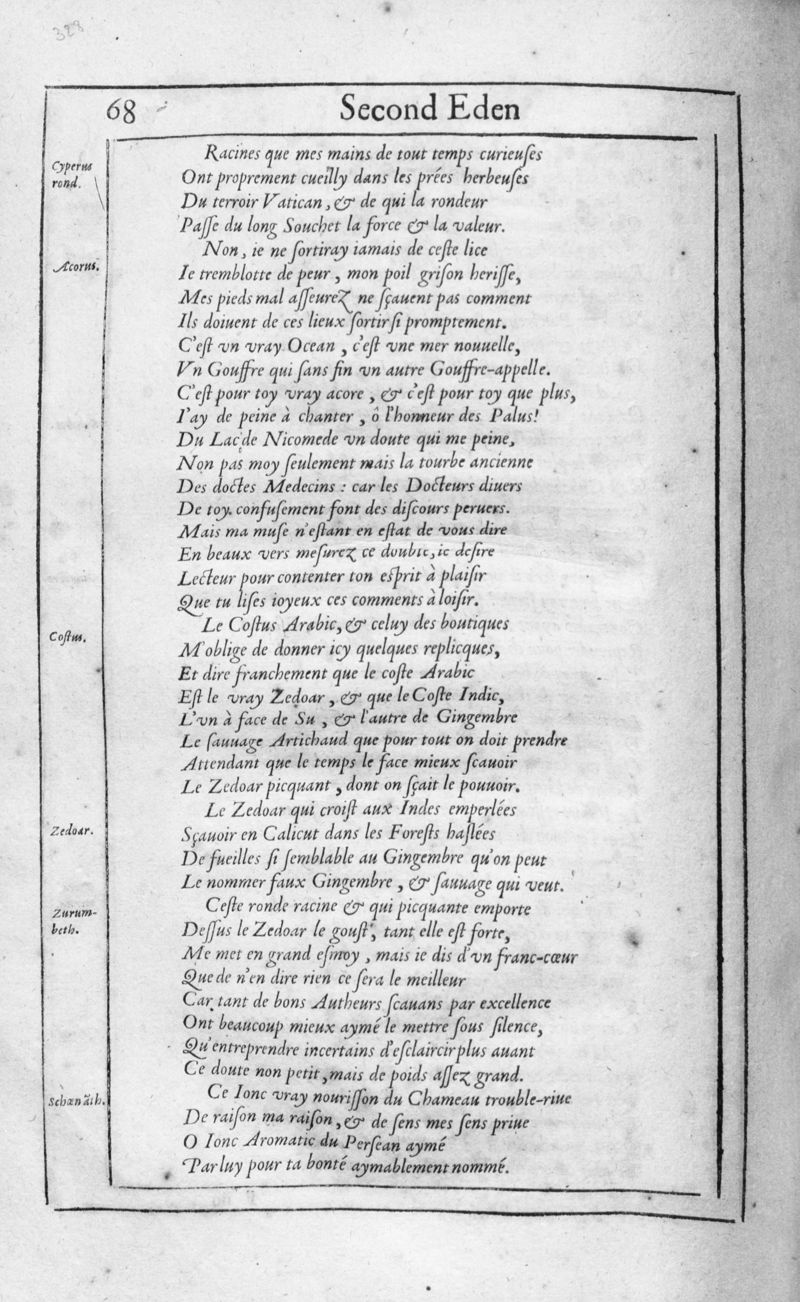 328
68 Second Eden
Racines que mes mains de tout temps curieuſes
Cyperus
rond.
Ont proprement cueilly dans les prées herbeuſes
Du terroir Vatican, & de qui la rondeur
Paſſe du long Souchet la force & la valeur.
Non, ie ne ſortiray iamais de ceſte lice
Acorus.
Ie tremblotte de peur, mon poil griſon heriſſe,
Mes pieds mal aſſeurez ne ſçauent pas comment
Ils doiuent de ces lieux ſortir ſi promptement.
C'eſt vn vray Ocean, c'eſt vne mer nouuelle,
Vn Gouffre qui ſans fin vn autre Gouffre-appelle.
C'eſt pour toy vray acore, & c'eſt pour toy que plus,
I'ay de peine à chanter, ô l'honneur des Palus!
Du Lac de Nicomede vn doute qui me peine,
Non pas moy ſeulement mais la tourbe ancienne
Des doctes Medecins : car les Docteurs diuers
De toy confuſement font des diſcours peruers.
Mais ma muſe n'eſtant en eſtat de vous dire
En beaux vers meſurez ce doubte, ie deſire
Lecteur pour contenter ton eſprit à plaiſir
Que tu liſes ioyeux ces comments à loiſir.
Le Coſtus Arabic, & celuy des boutiques
Coſtus.
M'oblige de donner icy quelques replicques,
Et dire franchement que le coſte Arabic
Eſt le vray Zedoar, & que le Coſte Indic,
L'vn à face de Su, & l'autre de Gingembre
Le ſauuage Artichaud que pour tout on doit prendre
Attendant que le temps le face mieux ſcauoir
Le Zedoar picquant, dont on ſçait le pouuoir.
Le Zedoar qui croiſt aux Indes emperlées
Zedoar.
Sçauoir en Calicut dans les Foreſts haſlées
De fueilles ſi ſemblable au Gingembre qu'on peut
Le nommer faux Gingembre, & ſauuage qui veut.
Ceſte ronde racine & qui picquante emporte
Zurum-
beth.
Deſſus le Zedoar le gouſt, tant elle eſt forte,
Me met en grand eſmoy, mais ie dis d'vn franc-cœur
Que de n'en dire rien ce ſera le meilleur
Car tant de bons Autheurs ſcauans par excellence
Ont beaucoup mieux aymé le mettre ſous ſilence,
Qu'entreprendre incertains d'eſclaircir plus auant
Ce doute non petit, mais de poids aſſez grand.
Ce Ionc vray nouriſſon du Chameau trouble-riue
De raiſon ma raiſon, & de ſens mes ſens priue
O Ionc Aromatic du Perſean aymé
Par luy pour ta bonté aymablement nommé.